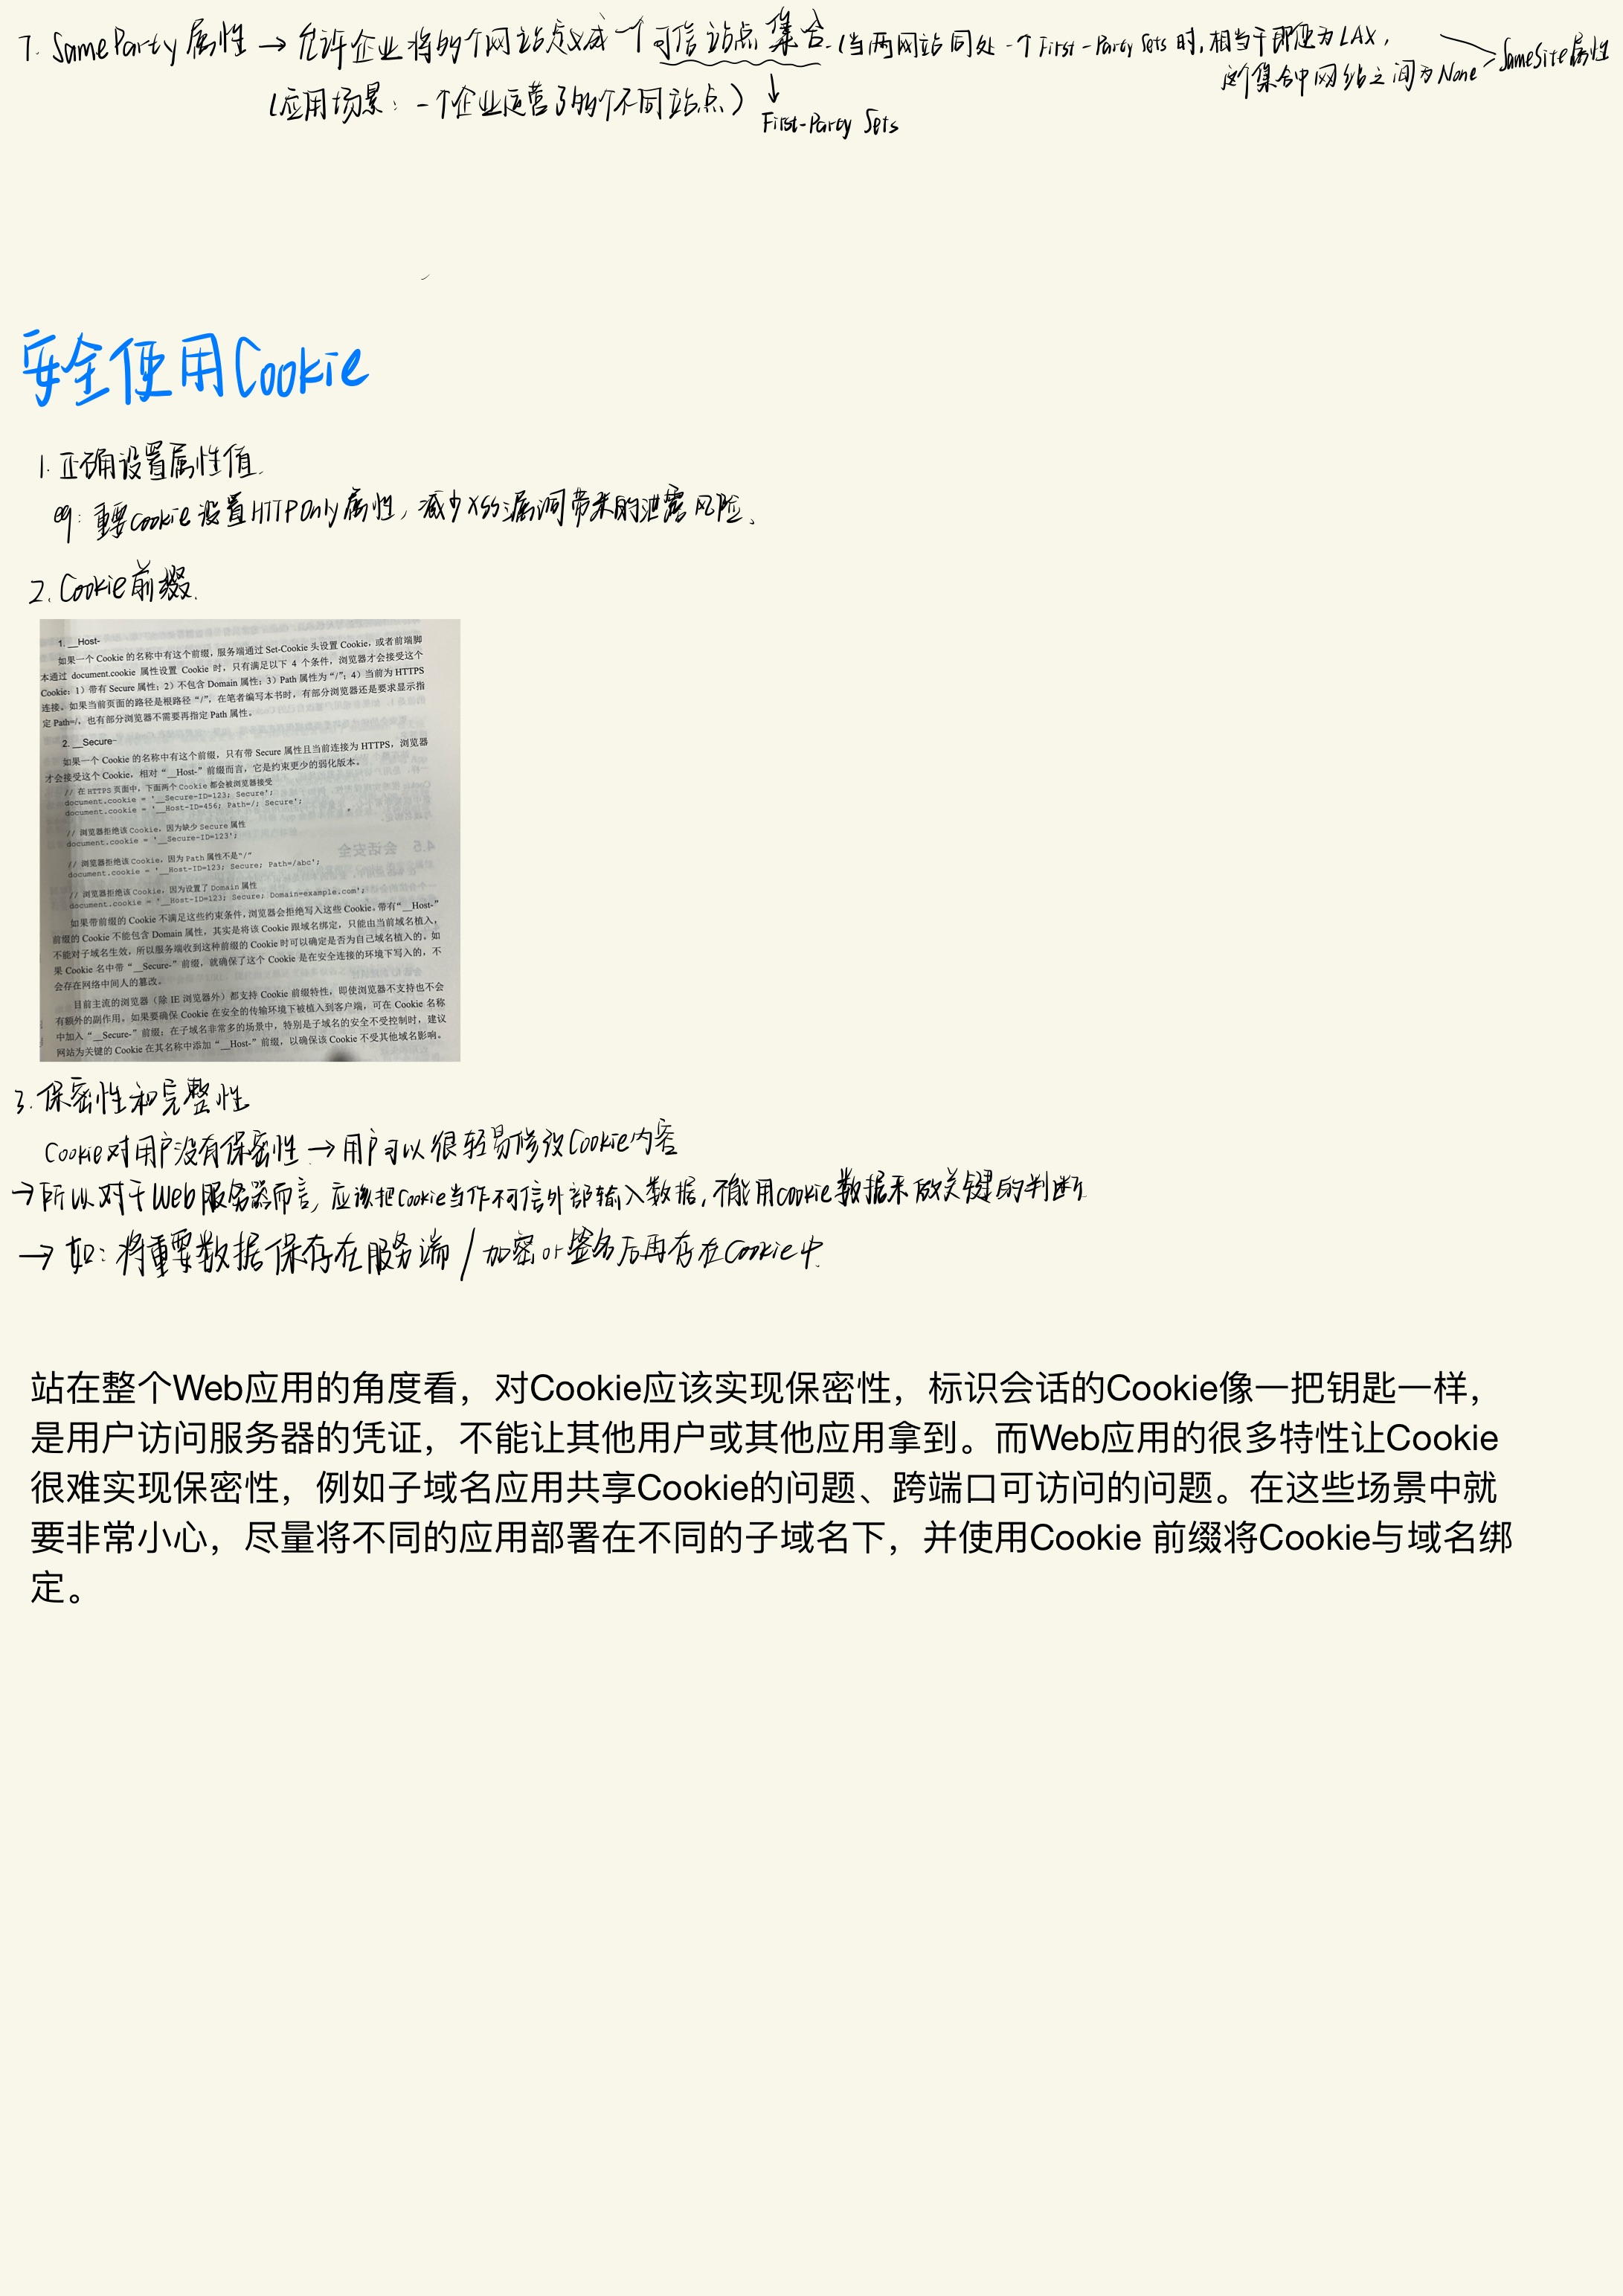 7. SameParty属性 → 允许企业将多个网站定义成一个可信站点集合.(当两网站同处一个First-Party Sets时,相当于即便为LAX,
这个集合中网站之间为None
SameSite属性
(应用场景:一个企业运营了多个不同站点)
First-Party Sets
安全使用Cookie
1. 正确设置属性值.
eg: 重要cookie设置HTTPOnly属性,减少XSS漏洞带来的泄露风险、
2. Cookie前缀.
1. __Host-
如果一个 Cookie 的名称中有这个前缀,服务端通过 Set-Cookie 头设置 Cookie,或者前端脚
本通过 document.cookie 属性设置 Cookie 时,只有满足以下 4 个条件,浏览器才会接受这个
Cookie:1)带有 Secure 属性;2)不包含 Domain 属性;3)Path 属性为“/”;4)当前为 HTTPS
连接。如果当前页面的路径是根路径“/”,在笔者编写本书时,有部分浏览器还是要求显示指
定 Path=/,也有部分浏览器不需要再指定 Path 属性。
2. __Secure-
如果一个 Cookie 的名称中有这个前缀,只有带 Secure 属性且当前连接为 HTTPS,浏览器
才会接受这个 Cookie,相对“__Host-”前缀而言,它是约束更少的弱化版本。
// 在 HTTPS 页面中,下面两个 Cookie 都会被浏览器接受
document.cookie = '__Secure-ID=123; Secure';
document.cookie = '__Host-ID=456; Path=/; Secure';
// 浏览器拒绝该 Cookie,因为缺少 Secure 属性
document.cookie = '__Secure-ID=123';
// 浏览器拒绝该 Cookie,因为 Path 属性不是“/”
document.cookie = '__Host-ID=123; Secure; Path=/abc';
// 浏览器拒绝该 Cookie,因为设置了 Domain 属性
document.cookie = '__Host-ID=123; Secure; Domain=example.com';
如果带前缀的 Cookie 不满足这些约束条件,浏览器会拒绝写入这些 Cookie。带有“__Host-”
前缀的 Cookie 不能包含 Domain 属性,其实是将该 Cookie 跟域名绑定,只能由当前域名植入,
不能对子域名生效,所以服务端收到这种前缀的 Cookie 时可以确定是否为自己域名植入的。如
果 Cookie 名中带“__Secure-”前缀,就确保了这个 Cookie 是在安全连接的环境下写入的,不
会存在网络中间人的篡改。
目前主流的浏览器(除 IE 浏览器外)都支持 Cookie 前缀特性,即使浏览器不支持也不会
有额外的副作用。如果要确保 Cookie 在安全的传输环境下被植入到客户端,可在 Cookie 名称
中加入“__Secure-”前缀;在子域名非常多的场景中,特别是子域名的安全不受控制时,建议
网站为关键的 Cookie 在其名称中添加“__Host-”前缀,以确保该 Cookie 不受其他域名影响。
4.5 会话安全
3. 保密性和完整性
Cookie对用户没有保密性 → 用户可以很轻易修改Cookie内容
→ 所以对于Web服务器而言,应该把Cookie当作不可信外部输入数据,不能用cookie数据来做关键的判断
→ 如:将重要数据保存在服务端 / 加密or签名后再存在Cookie中.
站在整个Web应用的角度看,对Cookie应该实现保密性,标识会话的Cookie像一把钥匙一样,
是用户访问服务器的凭证,不能让其他用户或其他应用拿到。而Web应用的很多特性让Cookie
很难实现保密性,例如子域名应用共享Cookie的问题、跨端口可访问的问题。在这些场景中就
要非常小心,尽量将不同的应用部署在不同的子域名下,并使用Cookie 前缀将Cookie与域名绑
定。